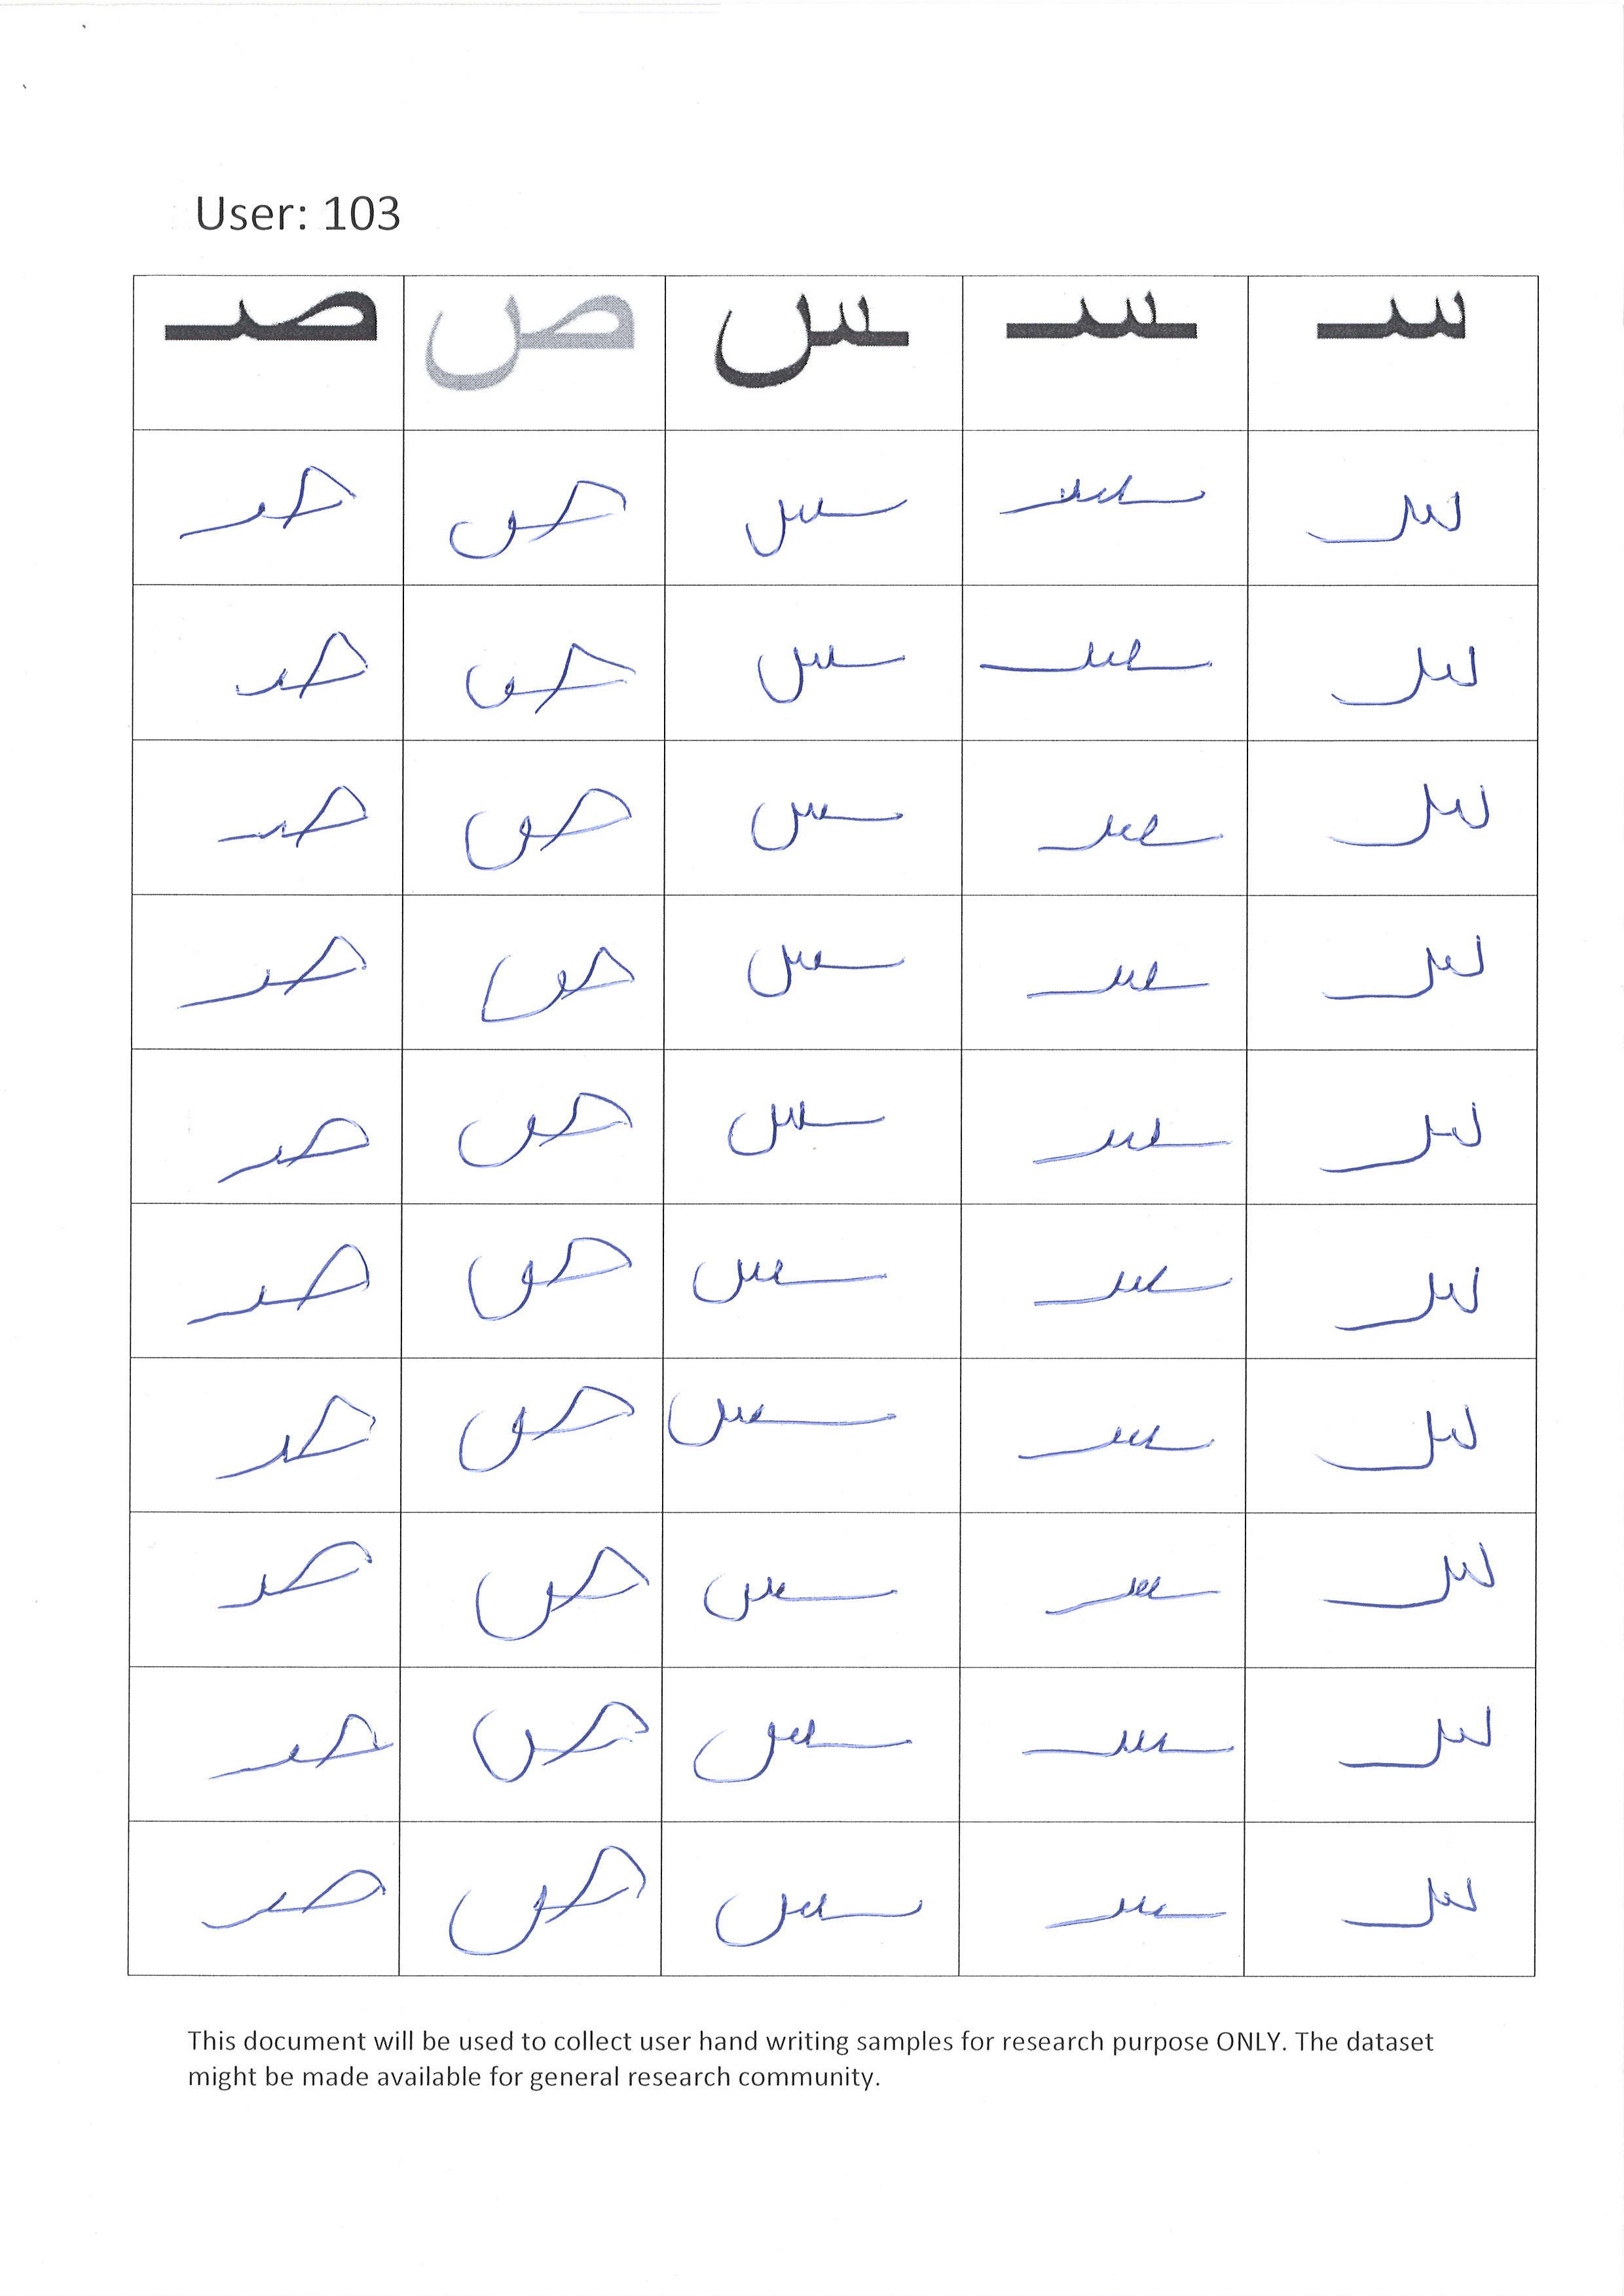 User: 103
سـ ـسـ ـس ص صـ
سـ ـسـ ـس ص صـ
سـ ـسـ ـس ص صـ
سـ ـسـ ـس ص صـ
سـ ـسـ ـس ص صـ
سـ ـسـ ـس ص صـ
سـ ـسـ ـس ص صـ
سـ ـسـ ـس ص صـ
سـ ـسـ ـس ص صـ
سـ ـسـ ـس ص صـ
سـ ـسـ ـس ص صـ
This document will be used to collect user hand writing samples for research purpose ONLY. The dataset
might be made available for general research community.